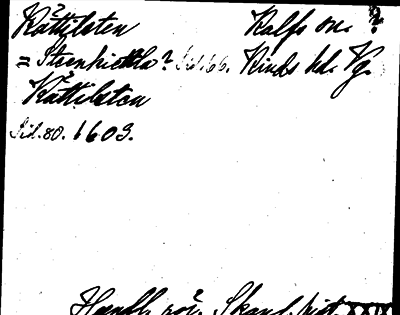 Kättilsten Kalfs sn. ?
= Stenkettla? Sid. 66. Kinds hd. Vg.
Kättilsten
Sid. 80. 1603.
Handl. rör. Skand. hist. XXXI